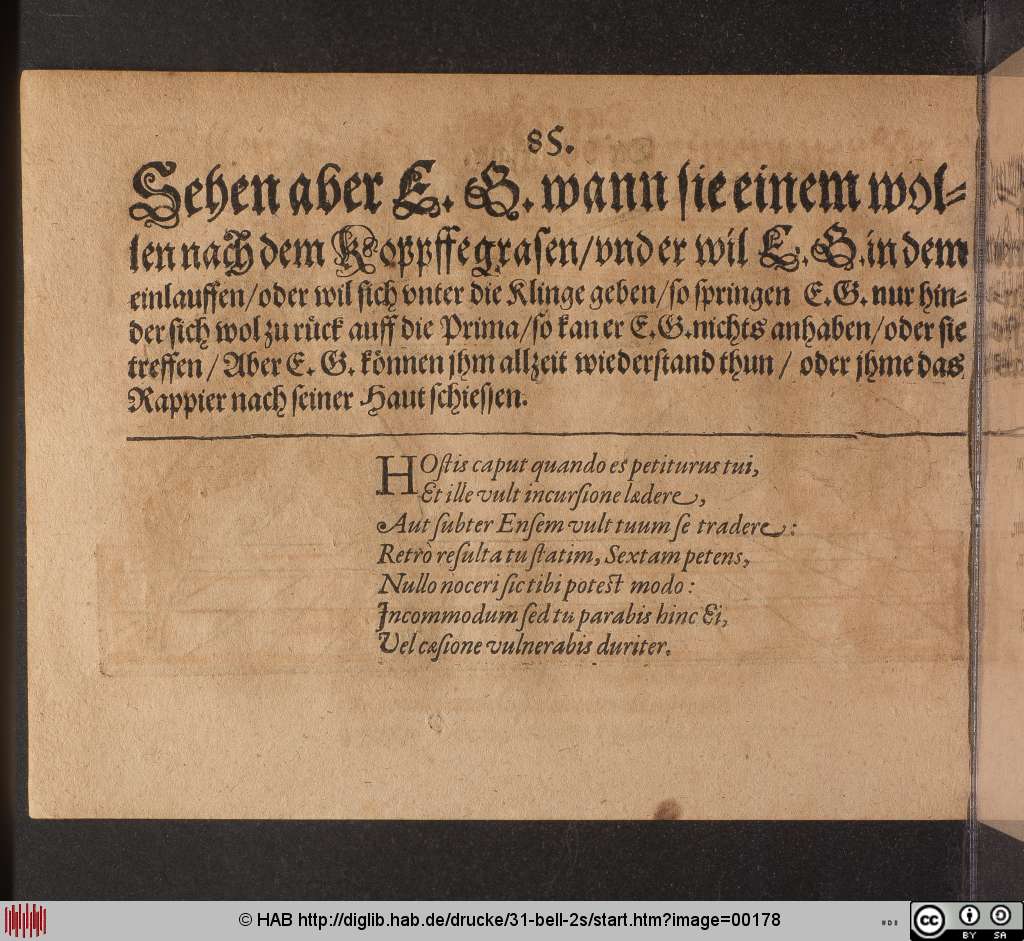 85.
Sehen aber E. G. wann sie einem wol-
len nach dem Koppffe grasen/vnd er wil E. G. in dem
einlauffen/oder wil sich vnter die Klinge geben/so springen E. G. nur hin-
der sich wol zu rück auff die Prima/so kan er E. G. nichts anhaben/oder sie
treffen/Aber E. G. können jhm allzeit wiederstand thun/ oder jhme das
Rappier nach seiner Haut schiessen.
HOstis caput quando es petiturus tui,
Et ille vult incursione lædere,
Aut subter Ensem vult tuum se tradere:
Retrò resulta tu statim, Sextam petens,
Nullo noceri sic tibi potest modo:
Incommodum sed tu parabis hinc Ei,
Vel cæsione vulnerabis duriter.
© HAB http://diglib.hab.de/drucke/31-bell-2s/start.htm?image=00178
cc BY SA